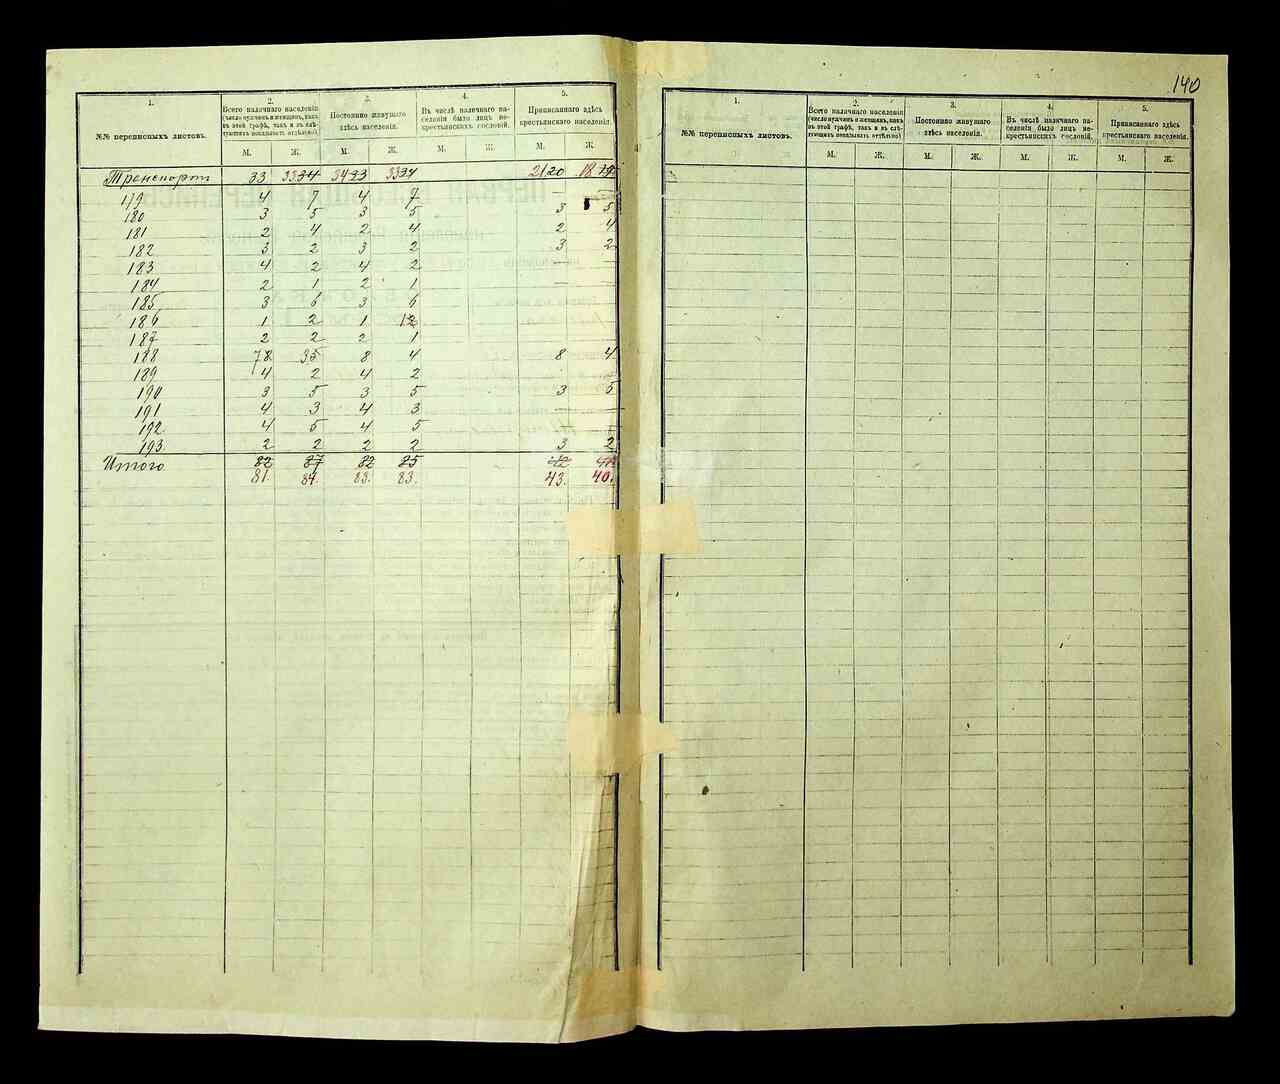 140
1. 2. 3. 4. 5.
№№ переписныхъ листовъ.
Всего наличнаго населенія (число мужчинъ и женщинъ, какъ въ этой графѣ, такъ и въ слѣдующихъ показывать отдѣльно)
Постоянно живущаго здѣсь населенія.
Въ числѣ наличнаго населенія было лицъ некрестьянскихъ сословій.
Приписаннаго здѣсь крестьянскаго населенія.
М. Ж. М. Ж. М. Ж. М. Ж.
Транспортъ 33 3334 3433 3334 2120 18 19
179 4 7 4 7
180 3 5 3 5 3 5
181 2 4 2 4 2 4
182 3 2 3 2 3 2
183 4 2 4 2
184 2 1 2 1
185 3 6 3 6
186 1 2 1 12
187 2 2 2 1
188 78 35 8 4 8 4
189 4 2 4 2
190 3 5 3 5 3 5
191 4 3 4 3
192 4 5 4 5
193 2 2 2 2 3 2
Итого 82 87 82 85 42
81. 84. 83. 83. 43. 40.
1. 2. 3. 4. 5.
№№ переписныхъ листовъ.
Всего наличнаго населенія (число мужчинъ и женщинъ, какъ въ этой графѣ, такъ и въ слѣдующихъ показывать отдѣльно)
Постоянно живущаго здѣсь населенія.
Въ числѣ наличнаго населенія было лицъ некрестьянскихъ сословій.
Приписаннаго здѣсь крестьянскаго населенія.
М. Ж. М. Ж. М. Ж. М. Ж.